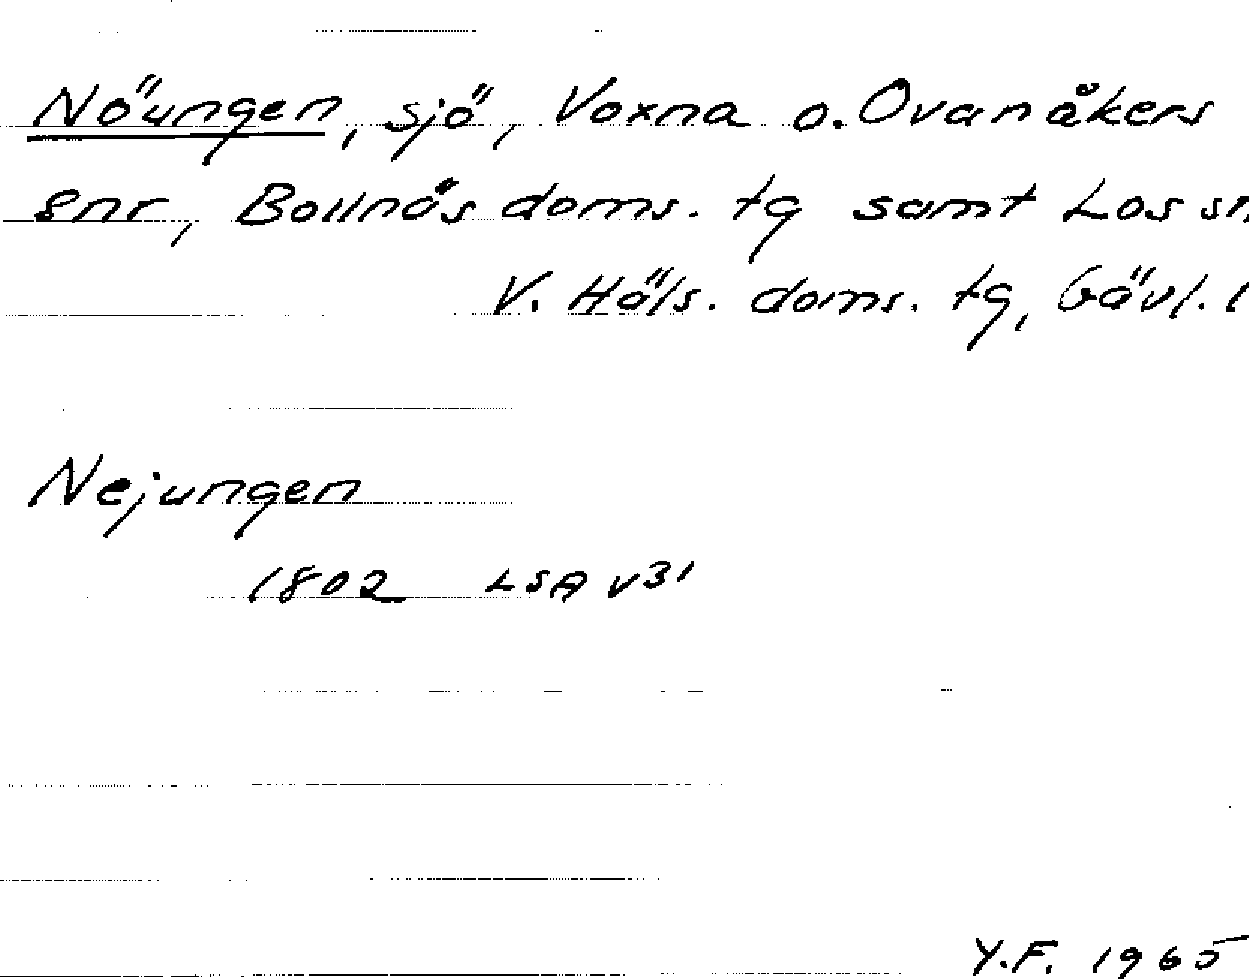 Nöungen, sjö, Voxna o. Ovanåkers
snr, Bollnäs doms. tg samt Los sn
V. Häls. doms. tg, Gävl. l
Nejungen
1802 LSA v31
Y.F. 1965